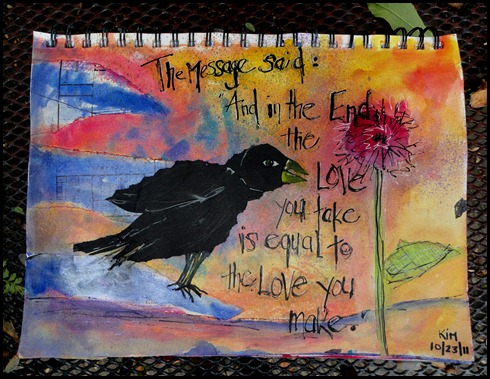 The Message said:
"And in the End
the
LOVE
you take
is equal to
the LOVE you
make."
KiM
10/23/11